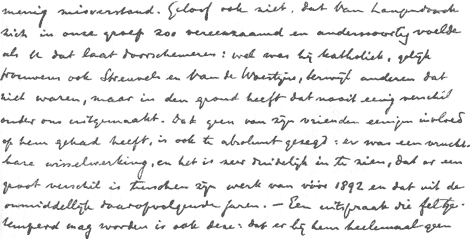 menig misverstand. Geloof ook niet, dat Van Langendonck
zich in onze groep zoo vereenzaamd en andersoortig voelde
als U dat laat doorschemeren: wel was hij katholiek, gelijk
trouwens ook Streuvels en Van de Woestijne, terwijl anderen dat
niet waren, maar in den grond heeft dat nooit eenig verschil
onder ons uitgemaakt. Dat geen van zijn vrienden eenigen invloed
op hem gehad heeft, is ook te absoluut gezegd: er was een vrucht-
bare wisselwerking, en het is zeer duidelijk in te zien, dat er een
groot verschil is tusschen zijn werk van vóór 1892 en dat uit de
onmiddellijk daaropvolgende jaren. — Een uitspraak die fel ge-
temperd mag worden is ook deze: dat er bij hem heelemaal geen